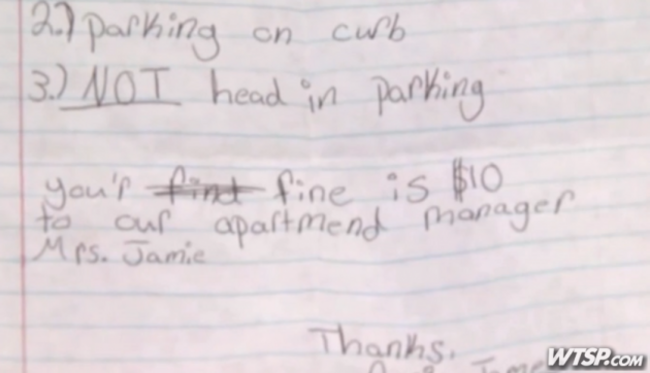 2.) parking on curb
3.) NOT head in parking
you'r fine is $10
to our apartmend manager
Mrs. Jamie
Thanks.
WTSP.COM